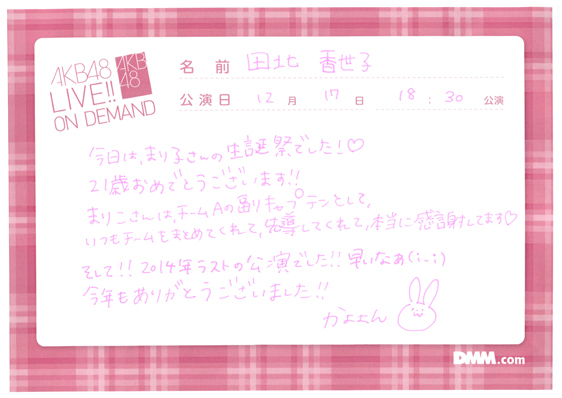 AKB48
LIVE!!
ON DEMAND
AKB
48
名前 田北 香世子
公演日 12月 17日 18:30 公演
今日は、まり子さんの生誕祭でした!♡
21歳おめでとうございます!!
まりこさんは、チームAの副リキャプテンとして、
いつもチームをまとめてくれて、先導してくれて、本当に感謝してます♡
そして!!2014年ラストの公演でした!!早いなぁ(;_;)
今年もありがとうございました!!
かよよん
DMM.com